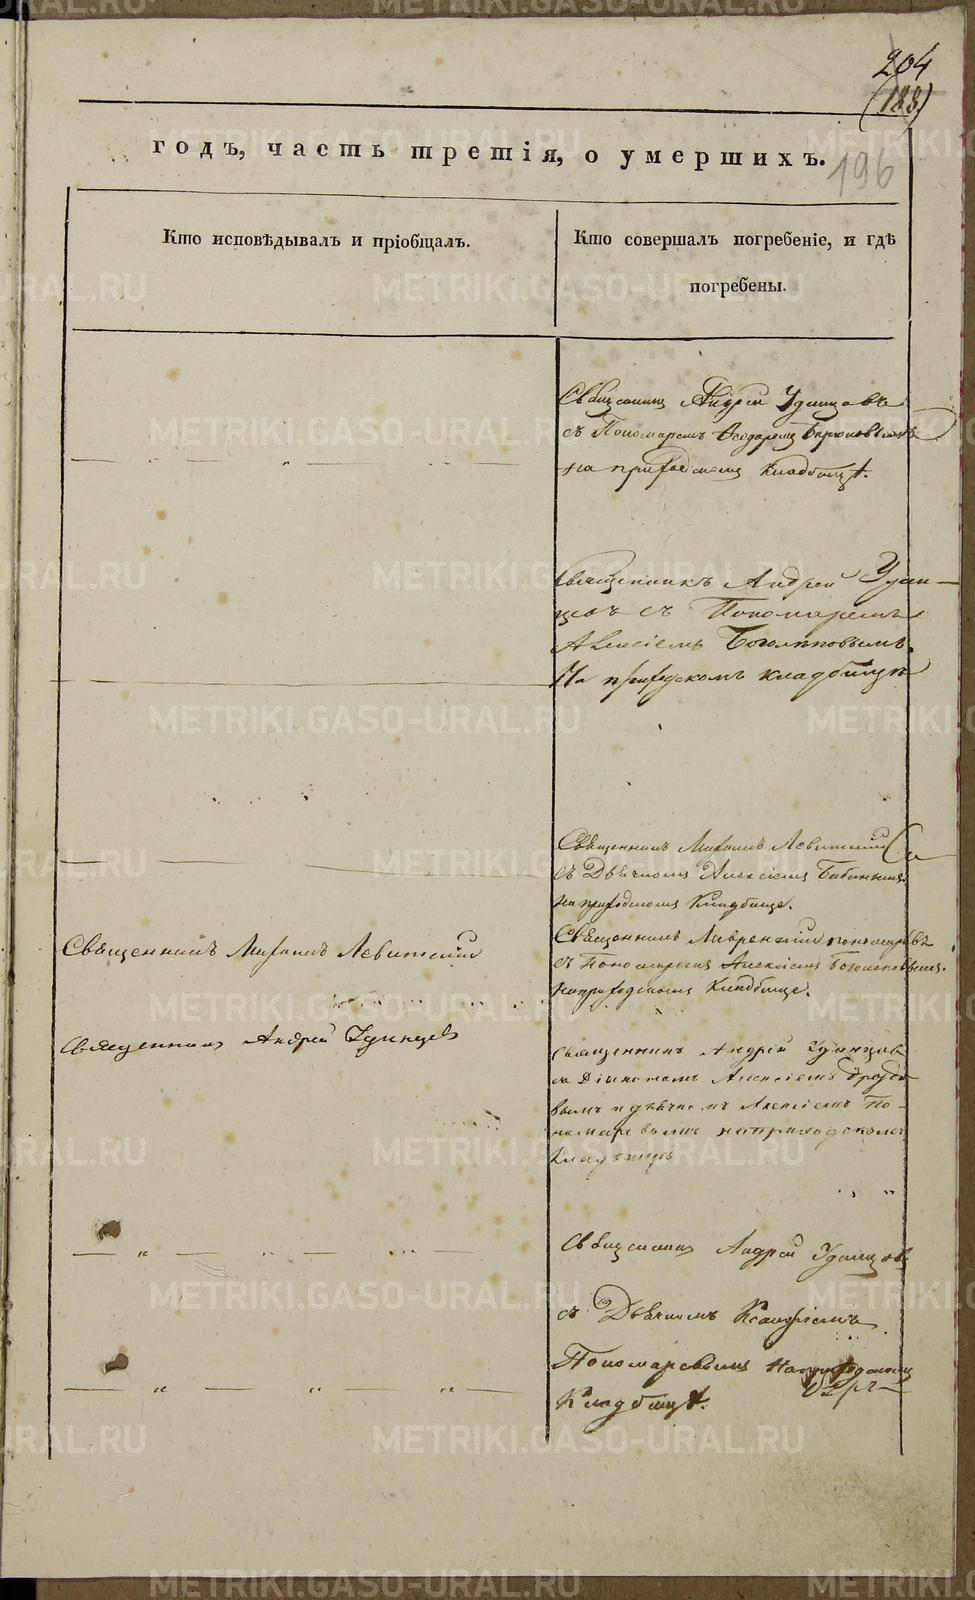 204
(188)
196
годъ, часть третія, о умершихъ.
Кто исповѣдывалъ и пріобщалъ.
Кто совершалъ погребеніе, и гдѣ
погребены.
Священник Андрей Удинцовъ
съ Пономаремъ Феодором
на приходском кладбищѣ.
Священникъ Андрей Удин-
цовъ съ Пономаремъ
Алексіемъ Боголѣповымъ.
На приходскомъ кладбищѣ
Священникъ Михаилъ Левитскій
съ Дьячкомъ Алексіемъ
на приходскомъ Кладбище.
Священникъ Михаилъ Левитскій
Священникъ Лаврентий
съ Пономаремъ Алексіемъ Боголеповымъ.
на приходскомъ Кладбище.
Священникъ Андрей Удинцевъ
Священникъ Андрей Удинцов
съ Діакономъ Алексіемъ
вымъ и дьячкомъ Алексіемъ По-
номаревымъ на приходскомъ
кладбищѣ
Священник Андрей Удинцов
съ Дьячкомъ
Пономаревымъ На приходском
Кладбищѣ.
METRIKI.GASO-URAL.RU